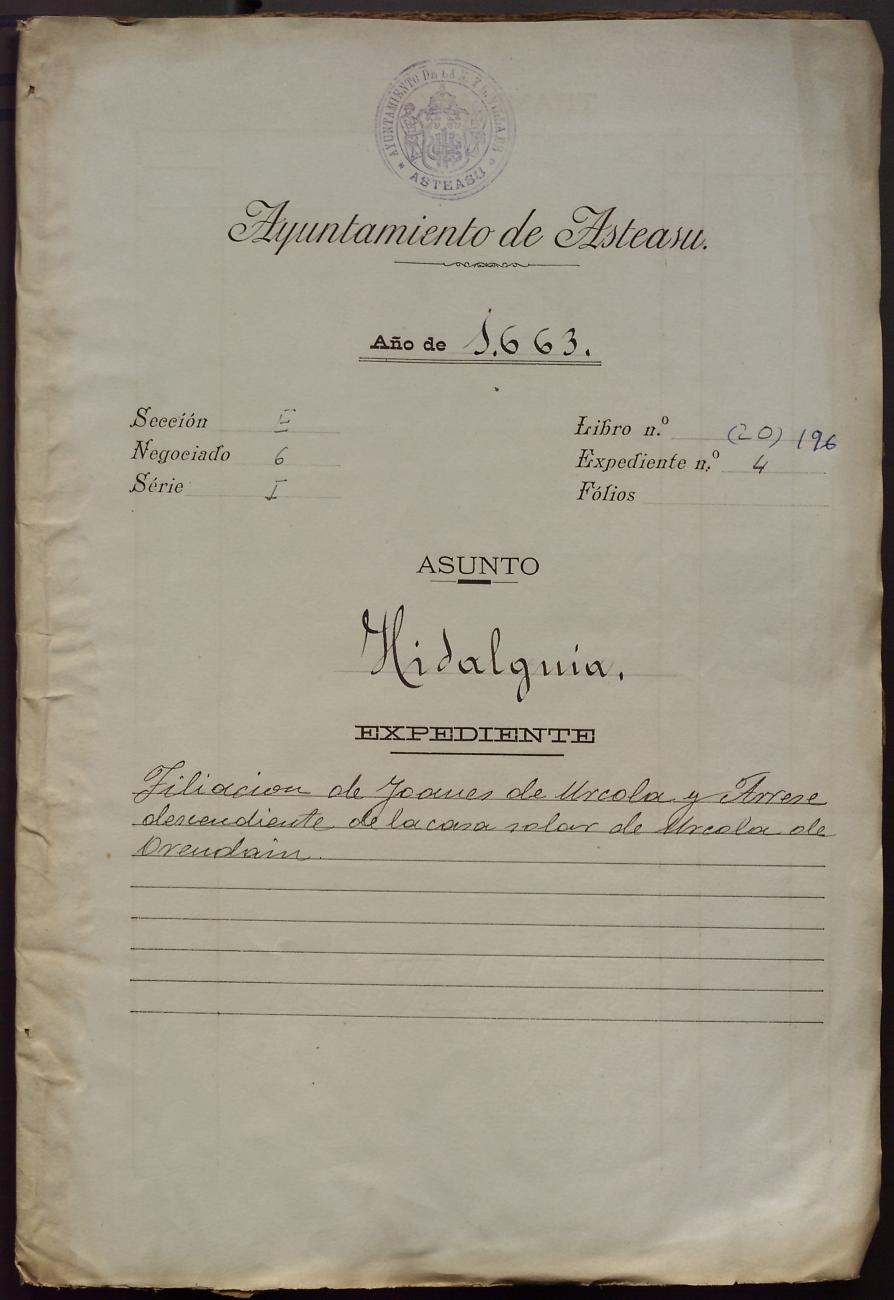 AYUNTAMIENTO DE LA N. Y L. VILLA DE
* ASTEASU *
Ayuntamiento de Asteasu.
Año de 1.663.
Sección E
Negociado 6
Série I
Libro n.º (20) 196
Expediente n.º 4
Fólios
ASUNTO
Hidalguia.
EXPEDIENTE
Filiacion de Joanes de Urcola y Arrese
descendiente de la casa solar de Urcola de
Orendain.